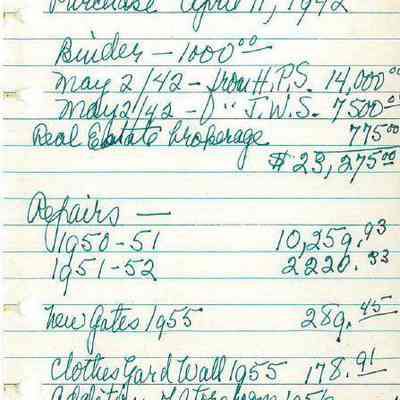 Purchase April 11, 1942
Binder - 1000.00
May 2/42 - from H.P.S. 14,000.00
May 2/42 - " J.W.S. 7500.00
Real Estate brokerage 775.00
$23,275.00
Repairs —
1950-51 10,259.93
1951-52 2220.33
New Gates 1955 289.45
Clothes Yard Wall 1955 178.91
Addition of Storeroom 1956